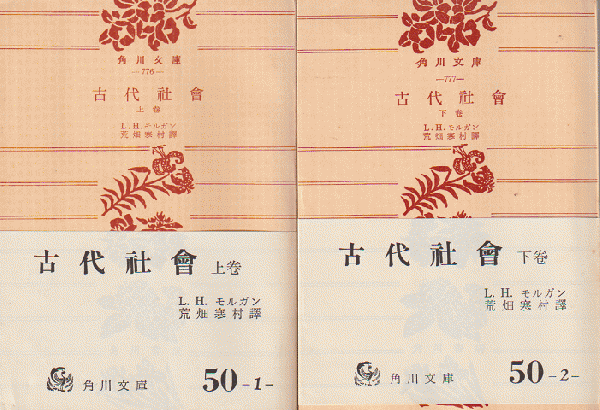 角川文庫
—776—
古代社會
上卷
L.H.モルガン
荒畑寒村譯
古代社會 上卷
L.H. モルガン
荒畑寒村譯
角川文庫 50-1-
角川文庫
—777—
古代社會
下卷
L.H.モルガン
荒畑寒村譯
古代社會 下卷
L.H. モルガン
荒畑寒村譯
角川文庫 50-2-